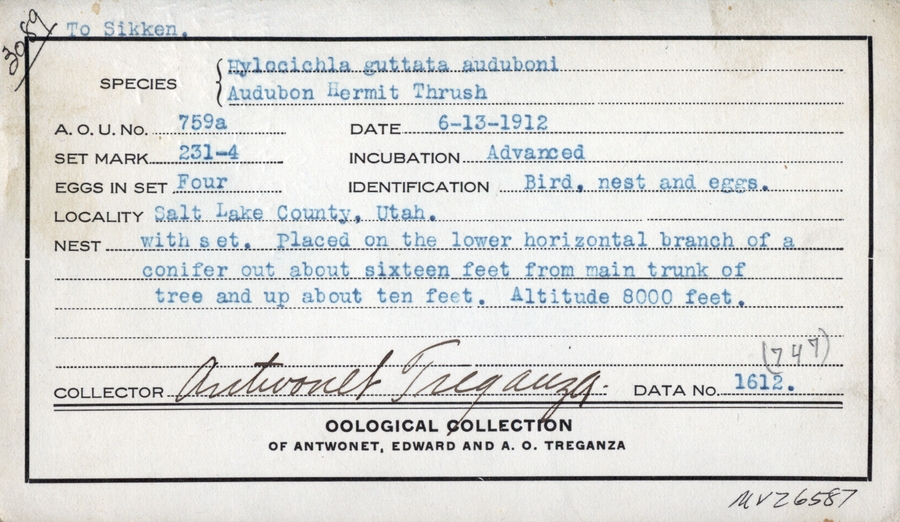 3089
To Sikken.
SPECIES { Hylocichla guttata auduboni
Audubon Hermit Thrush
A. O. U. No. 759a DATE 6-13-1912
SET MARK 231-4 INCUBATION Advanced
EGGS IN SET Four IDENTIFICATION Bird, nest and eggs.
LOCALITY Salt Lake County, Utah.
NEST with set. Placed on the lower horizontal branch of a
conifer out about sixteen feet from main trunk of
tree and up about ten feet. Altitude 8000 feet.
(747)
COLLECTOR Antwonet Treganza. DATA No. 1612.
OOLOGICAL COLLECTION
OF ANTWONET, EDWARD AND A. O. TREGANZA
MVZ6587